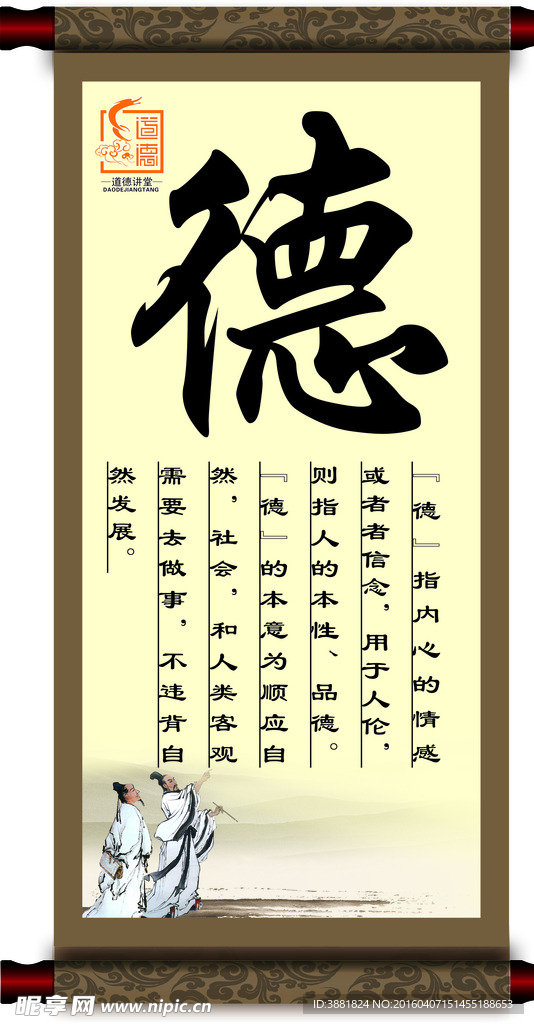 道德
道德讲堂
DAODEJIANGTANG
德
『德』指内心的情感
或者者信念，用于人伦，
则指人的本性、品德。
『德』的本意为顺应自
然，社会，和人类客观
需要去做事，不违背自
然发展。
昵享网 www.nipic.cn
ID:3881824 NO:20160407151455188653